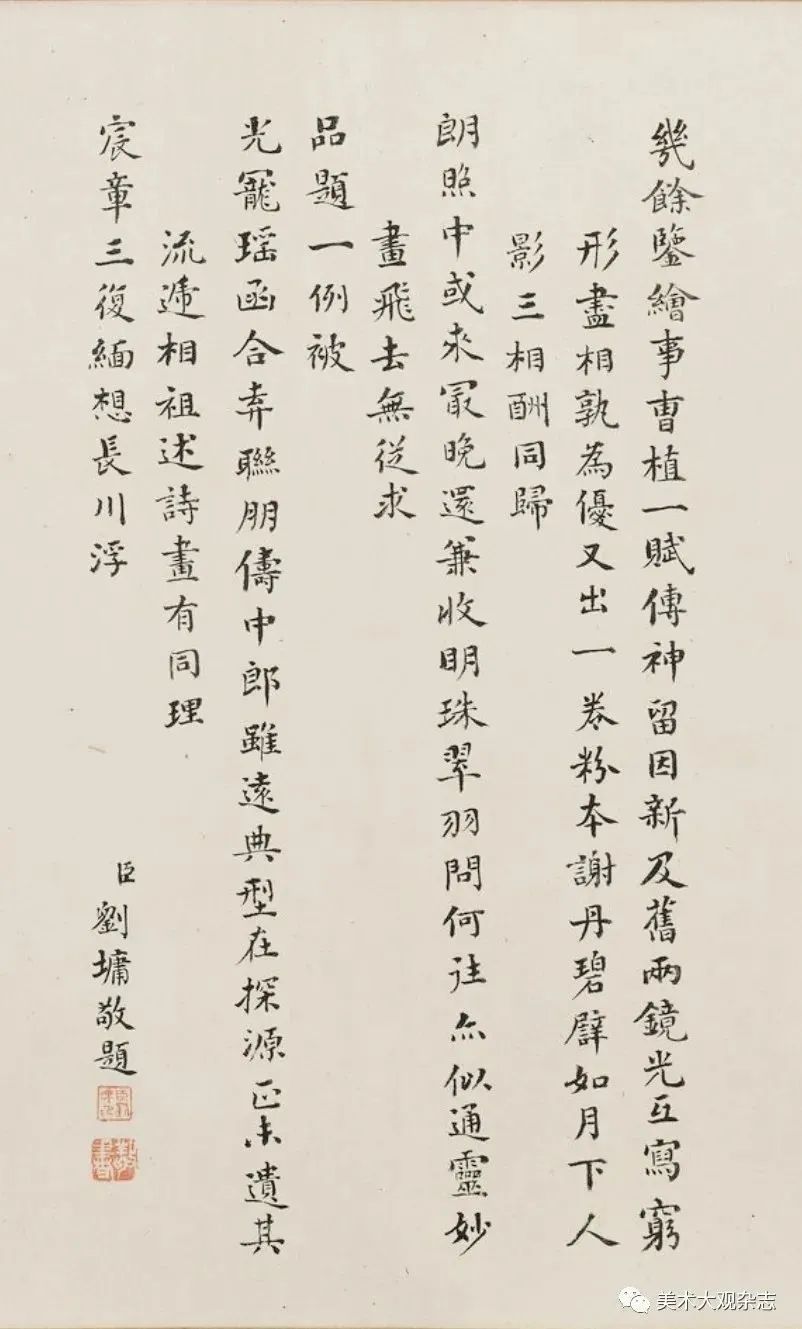 幾餘鑒繪事曹植一賦傳神留因新及舊兩鏡光互寫窮
形盡相孰為優又出一卷粉本謝丹碧譬如月下人
影三相酬同歸
朗照中或來冣晚還兼收明珠翠羽問何往亦似通靈妙
畫飛去無從求
品題一例被
光寵瑶函合弆聯朋儔中郎雖遠典型在探源正未遺其
流遞相祖述詩畫有同理
宸章三復緬想長川浮
臣劉墉敬題
美术大观杂志